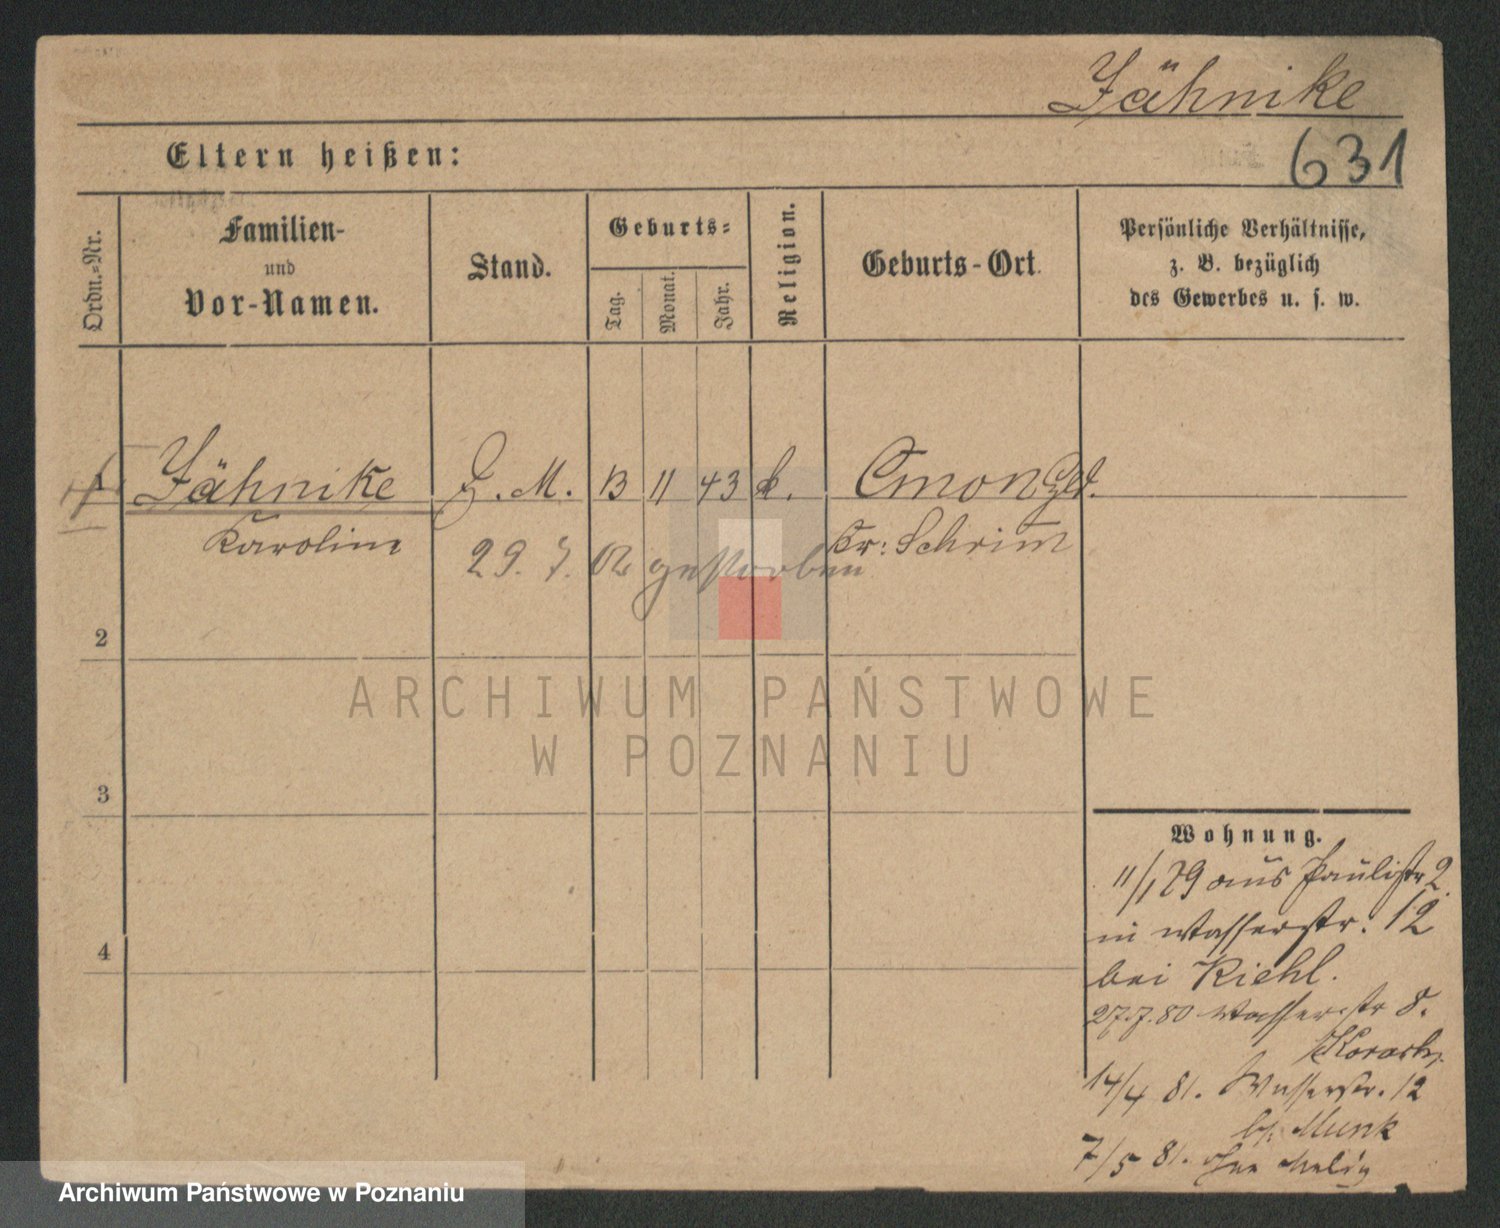 Jähnike
631
Eltern heißen:
Ordn.-Nr.
Familien-
und
Vor-Namen.
Stand.
Geburts-
Tag.
Monat.
Jahr.
Religion.
Geburts-Ort.
Persönliche Verhältnisse,
z. B. bezüglich
des Gewerbes u. s. w.
1 Jähnike D. M. 13 11 43 k.
Karoline Kr: Schrim
29. 7. 02 gestorben
2
3
4
ARCHIWUM PAŃSTWOWE
W POZNANIU
Wohnung.
11/1 79 aus Paulistr 2.
in Wasserstr. 12
bei Riehl.
27.7.80 Wasserstr 8.
14/4 81. Wasserstr. 12
bei Munk
7/5 81.
Archiwum Państwowe w Poznaniu